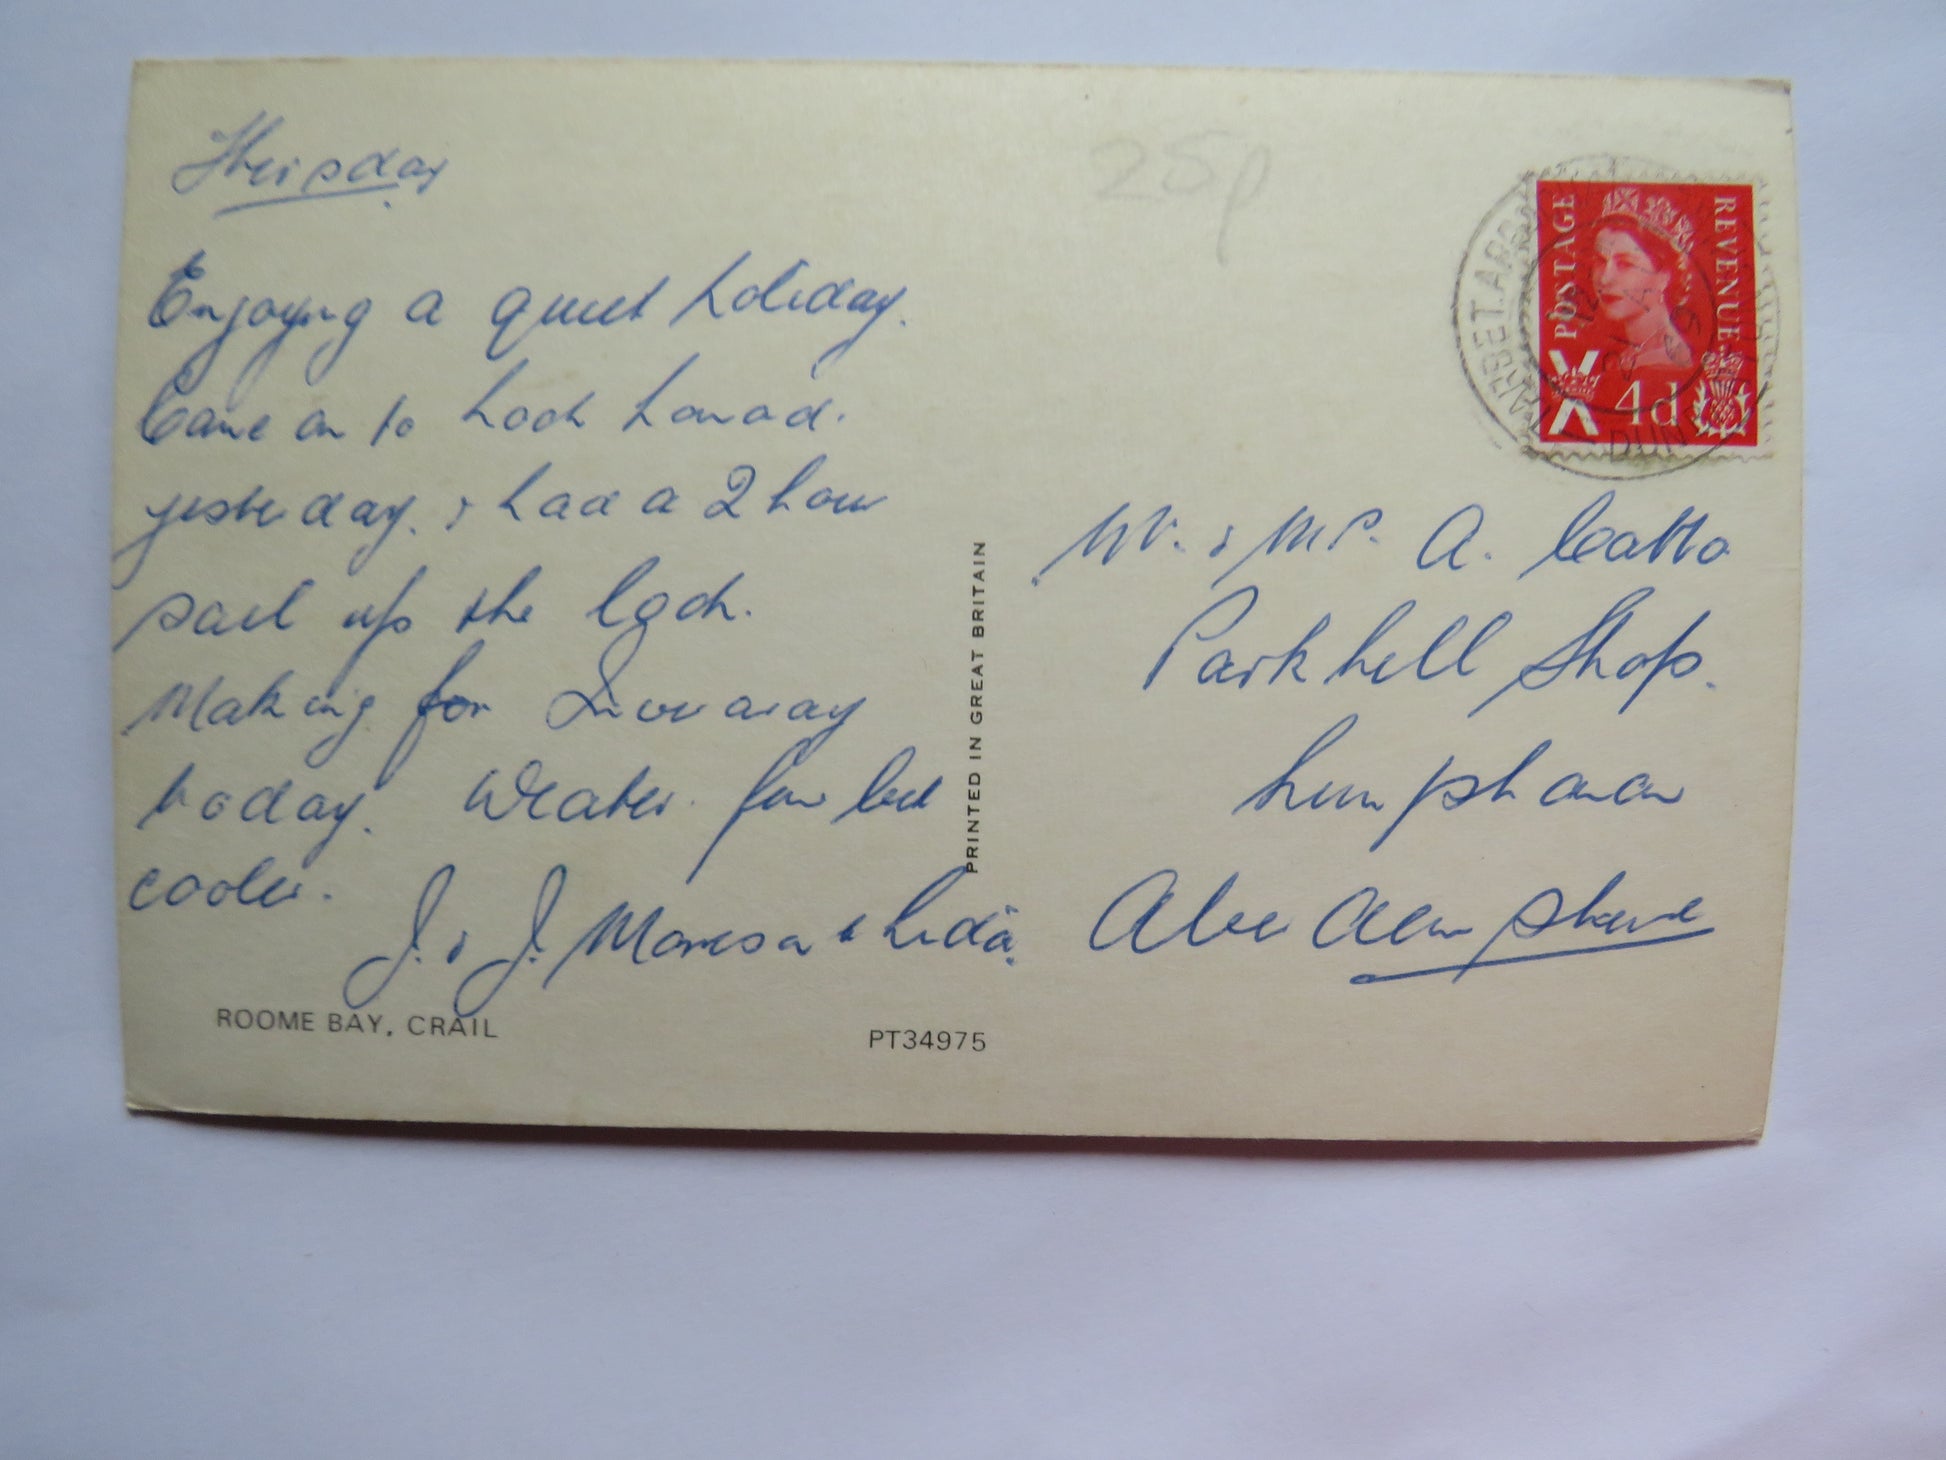 Thursday
Enjoying a quiet holiday.
Came on to Loch Lomond.
yesterday. & had a 2 hour
sail up the loch.
Making for Inveraray
today. Weather fair but
cooler.
J. & J. Moneesa & Linda.
ROOME BAY, CRAIL
PT34975
PRINTED IN GREAT BRITAIN
25p
POSTAGE
REVENUE
4d
TARBET.ARRO
DUN
Mr. & Mrs. A. Catto
Parkhill Shop.
Lumphanan
Aberdeenshire